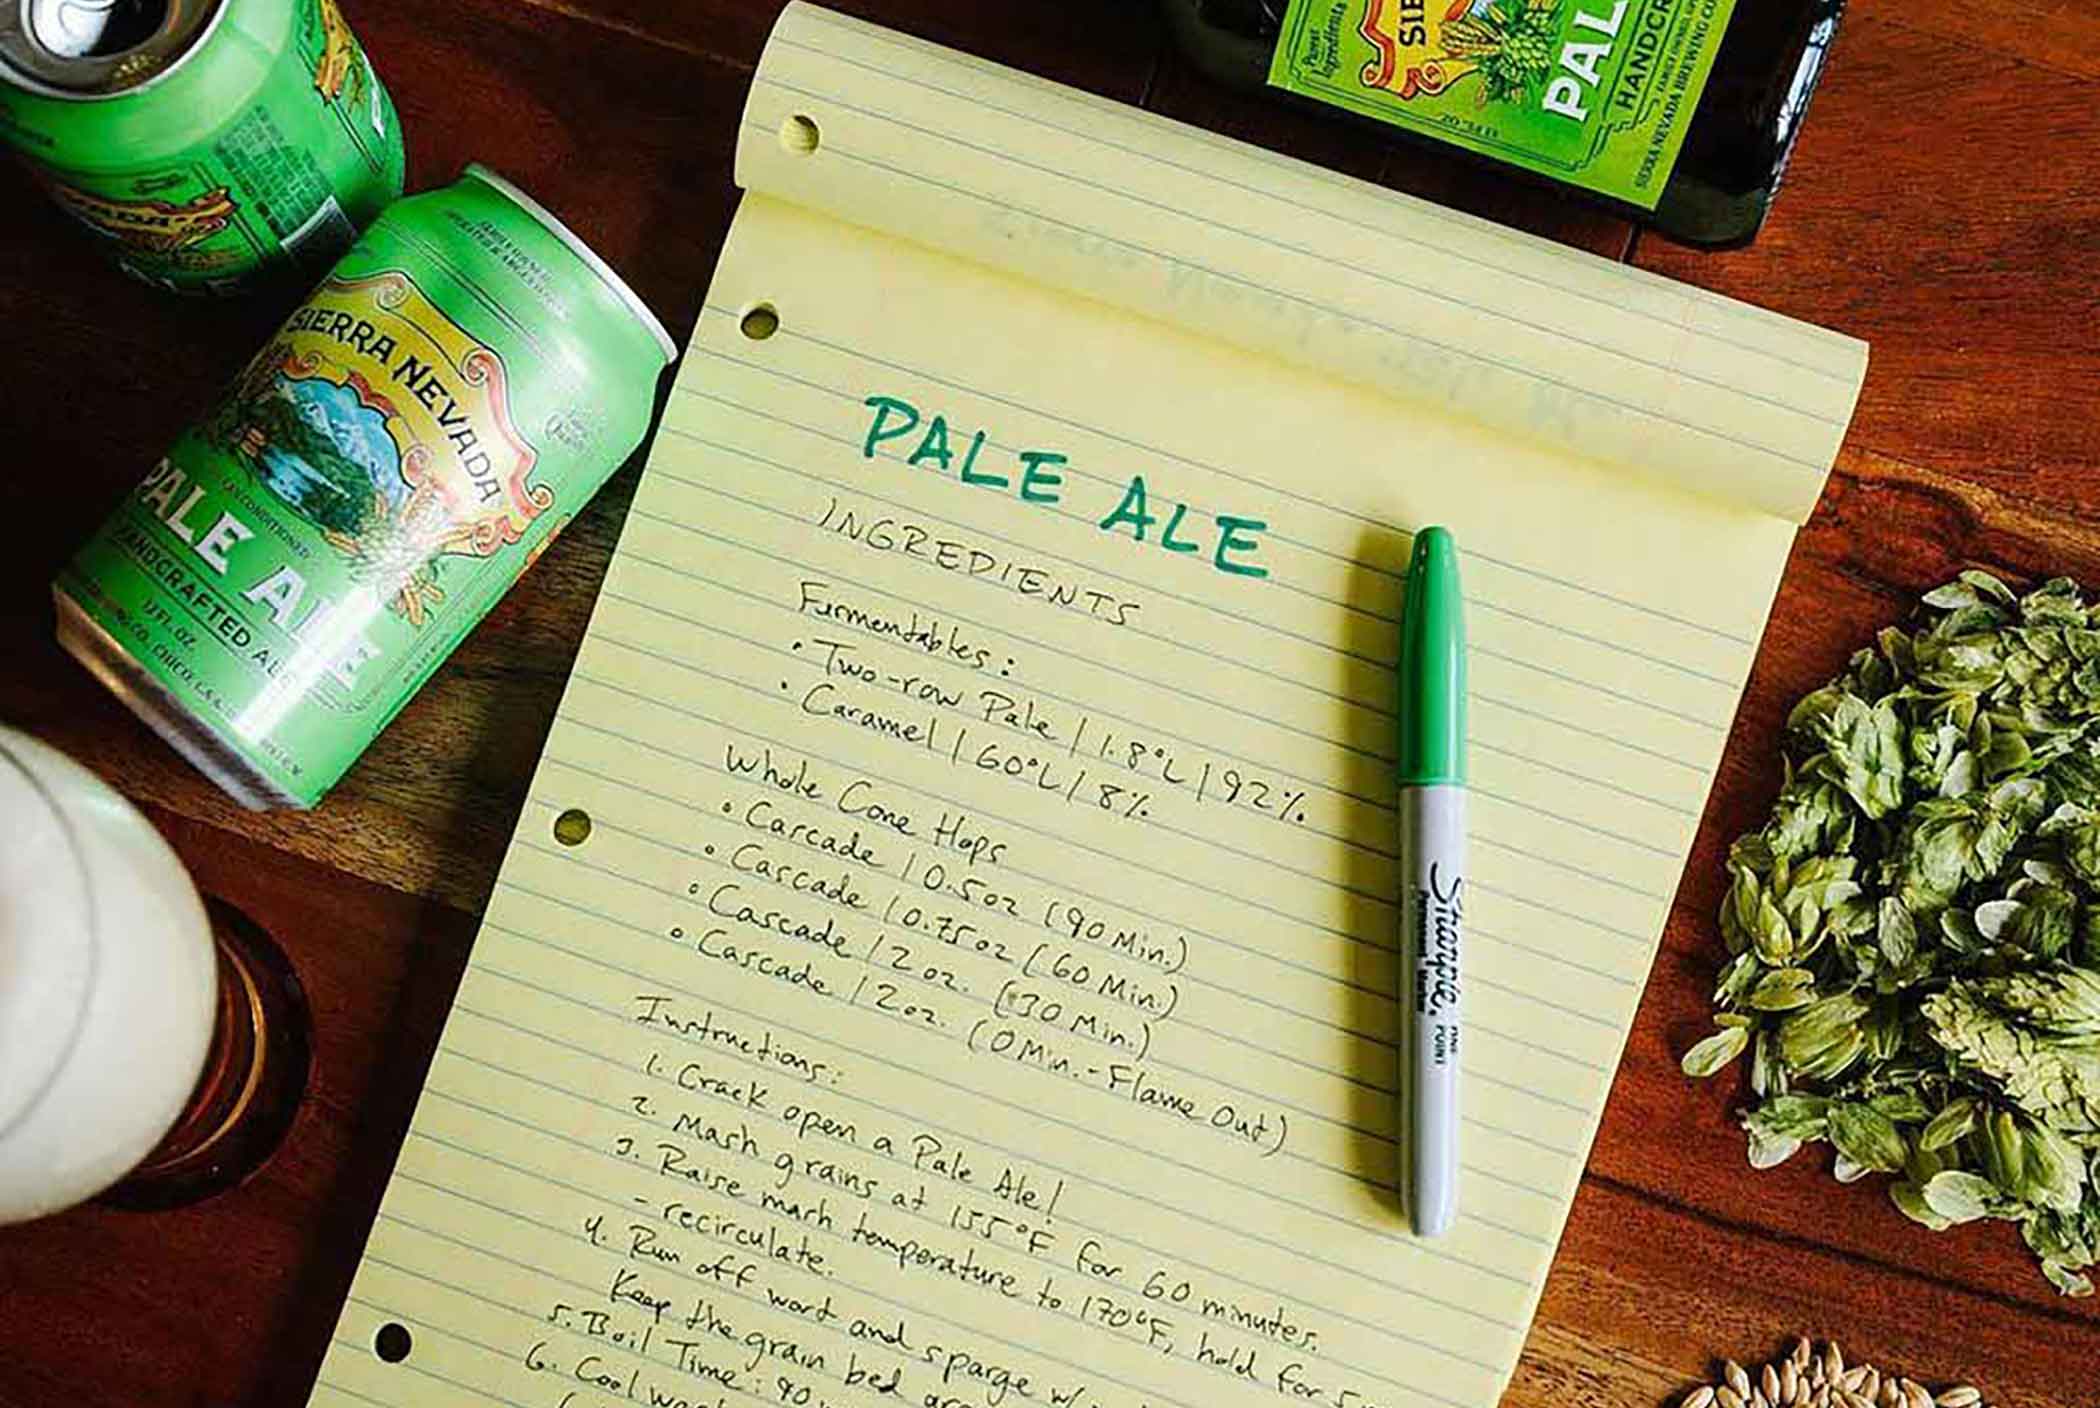 SIERRA NEVADA
PALE ALE
HANDCRAFTED ALE
12 FL. OZ.
PALE ALE
INGREDIENTS
Fermentables:
• Two-row Pale | 1.8°L | 92%
• Caramel | 60°L | 8%
Whole Cone Hops
• Cascade | 0.5oz (90 Min.)
• Cascade | 0.75oz (60 Min.)
• Cascade | 2 oz. (30 Min.)
• Cascade | 2 oz. (0 Min. - Flame Out)
Instructions:
1. Crack open a Pale Ale!
2. Mash grains at 155°F for 60 minutes.
3. Raise mash temperature to 170°F, hold for 5
- recirculate.
4. Run off wort and sparge w/
Keep the grain bed
5. Boil Time: 90
6. Cool
Sharpie.
FINE POINT
PAL
HANDCR
SIERRA NEVADA BREWING CO.